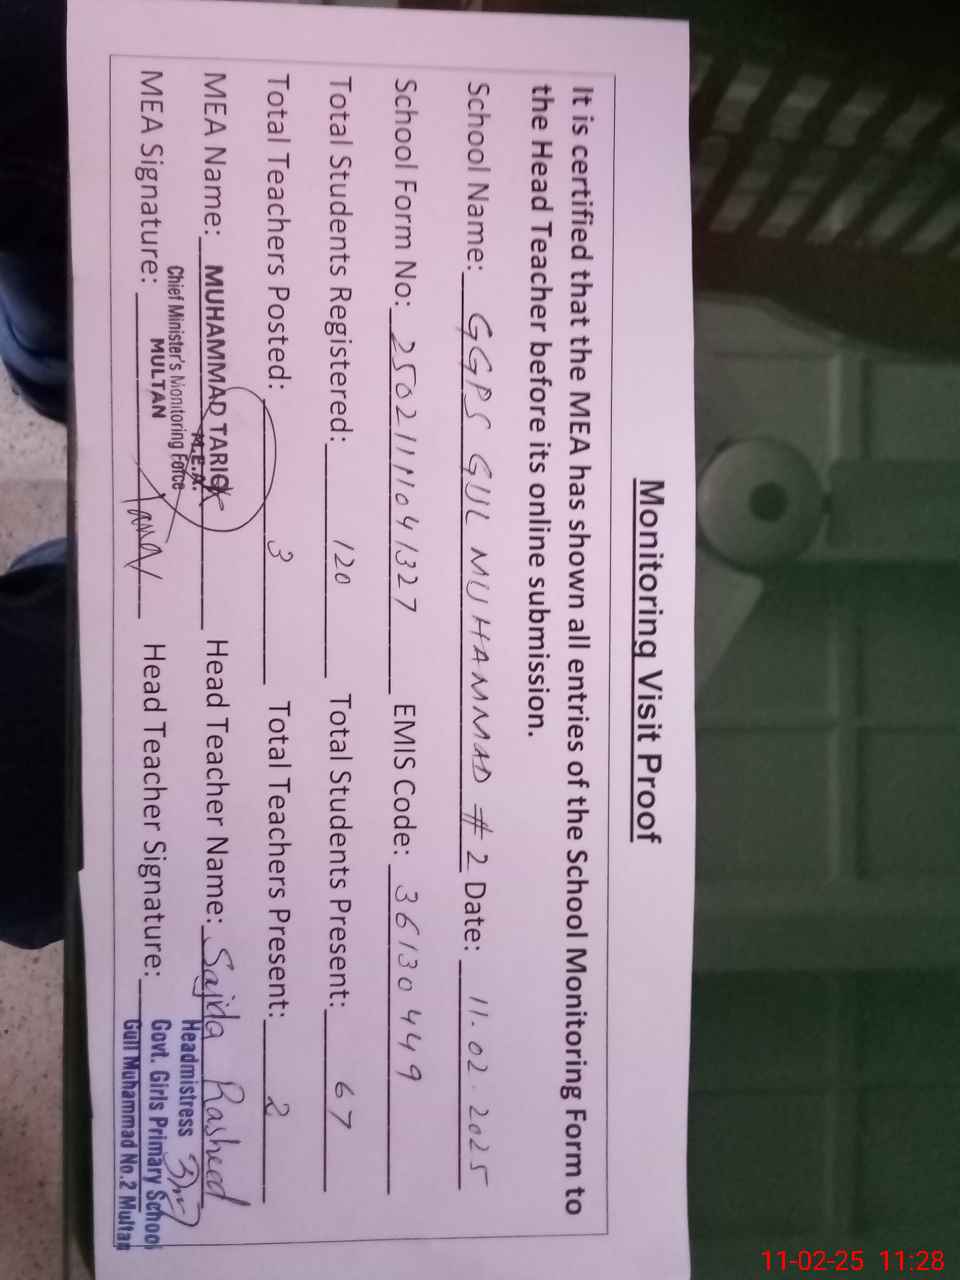 Monitoring Visit Proof
It is certified that the MEA has shown all entries of the School Monitoring Form to
the Head Teacher before its online submission.
School Name: GGPS GUL MUHAMMAD # 2 Date: 11.02.2025
School Form No: 25021111041327 EMIS Code: 36130449
Total Students Registered: 120 Total Students Present: 67
Total Teachers Posted: 3 Total Teachers Present: 2
MEA Name: MUHAMMAD TARIQ Head Teacher Name: Sajida Rasheed
M.E.A.
Chief Minister's Monitoring Force
MULTAN
MEA Signature: Head Teacher Signature:
Headmistress
Govt. Girls Primary School
Gull Muhammad No.2 Multan
11-02-25 11:28